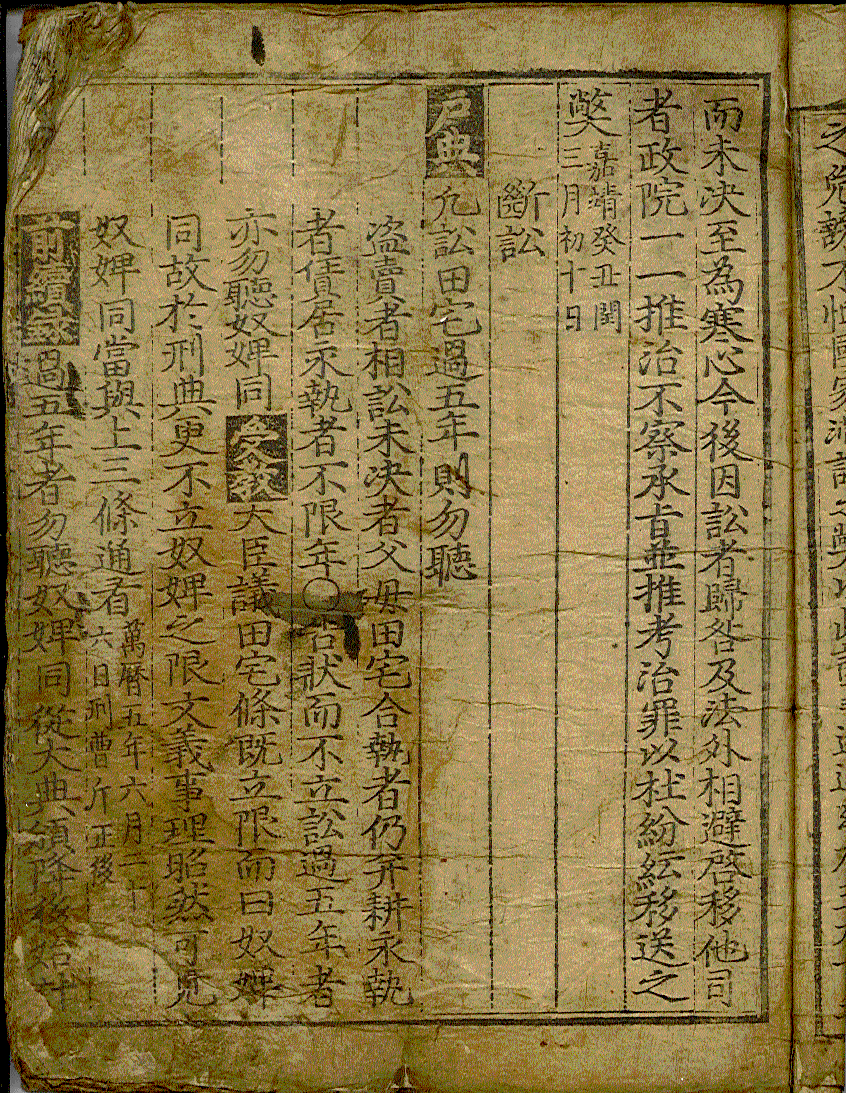 而未决至為寒心今後因訟者歸咎及法外相避啓移他司
者政院一一推治不察承旨並推考治罪以杜紛紜移送之
弊嘉靖癸丑閏
三月初十日
斷訟
戶典凢訟田宅過五年則勿聽
盜賣者相訟未决者父母田宅合執者仍幷耕永執
者賃居永執者不限年〇告狀而不立訟過五年者
亦勿聽奴婢同受敎大臣議田宅條旣立限而曰奴婢
同故於刑典更不立奴婢之限文義事理昭然可見
奴婢同當與上三條通看萬曆五年六月二十
六日刑曹斤正後
前續錄過五年者勿聽奴婢同從大典頒降後始計